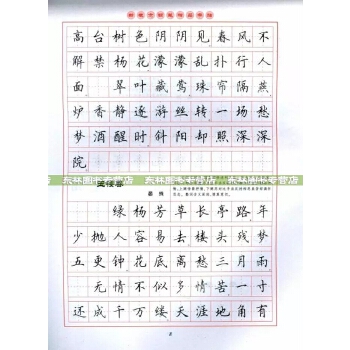 高台树色阴阴见春风不
解禁杨花濛濛乱扑行人
面 翠叶藏莺珠帘隔燕
炉香静逐游丝转一场愁
梦酒醒时斜阳却照深深
院
东林图书专营店 东林图书专营店 东林图书专营店
晏殊
绿杨芳草长亭路年
少抛人容易去楼头残梦
五更钟花底离愁三月雨
无情不似多情苦一寸
还成千万缕天涯地角有